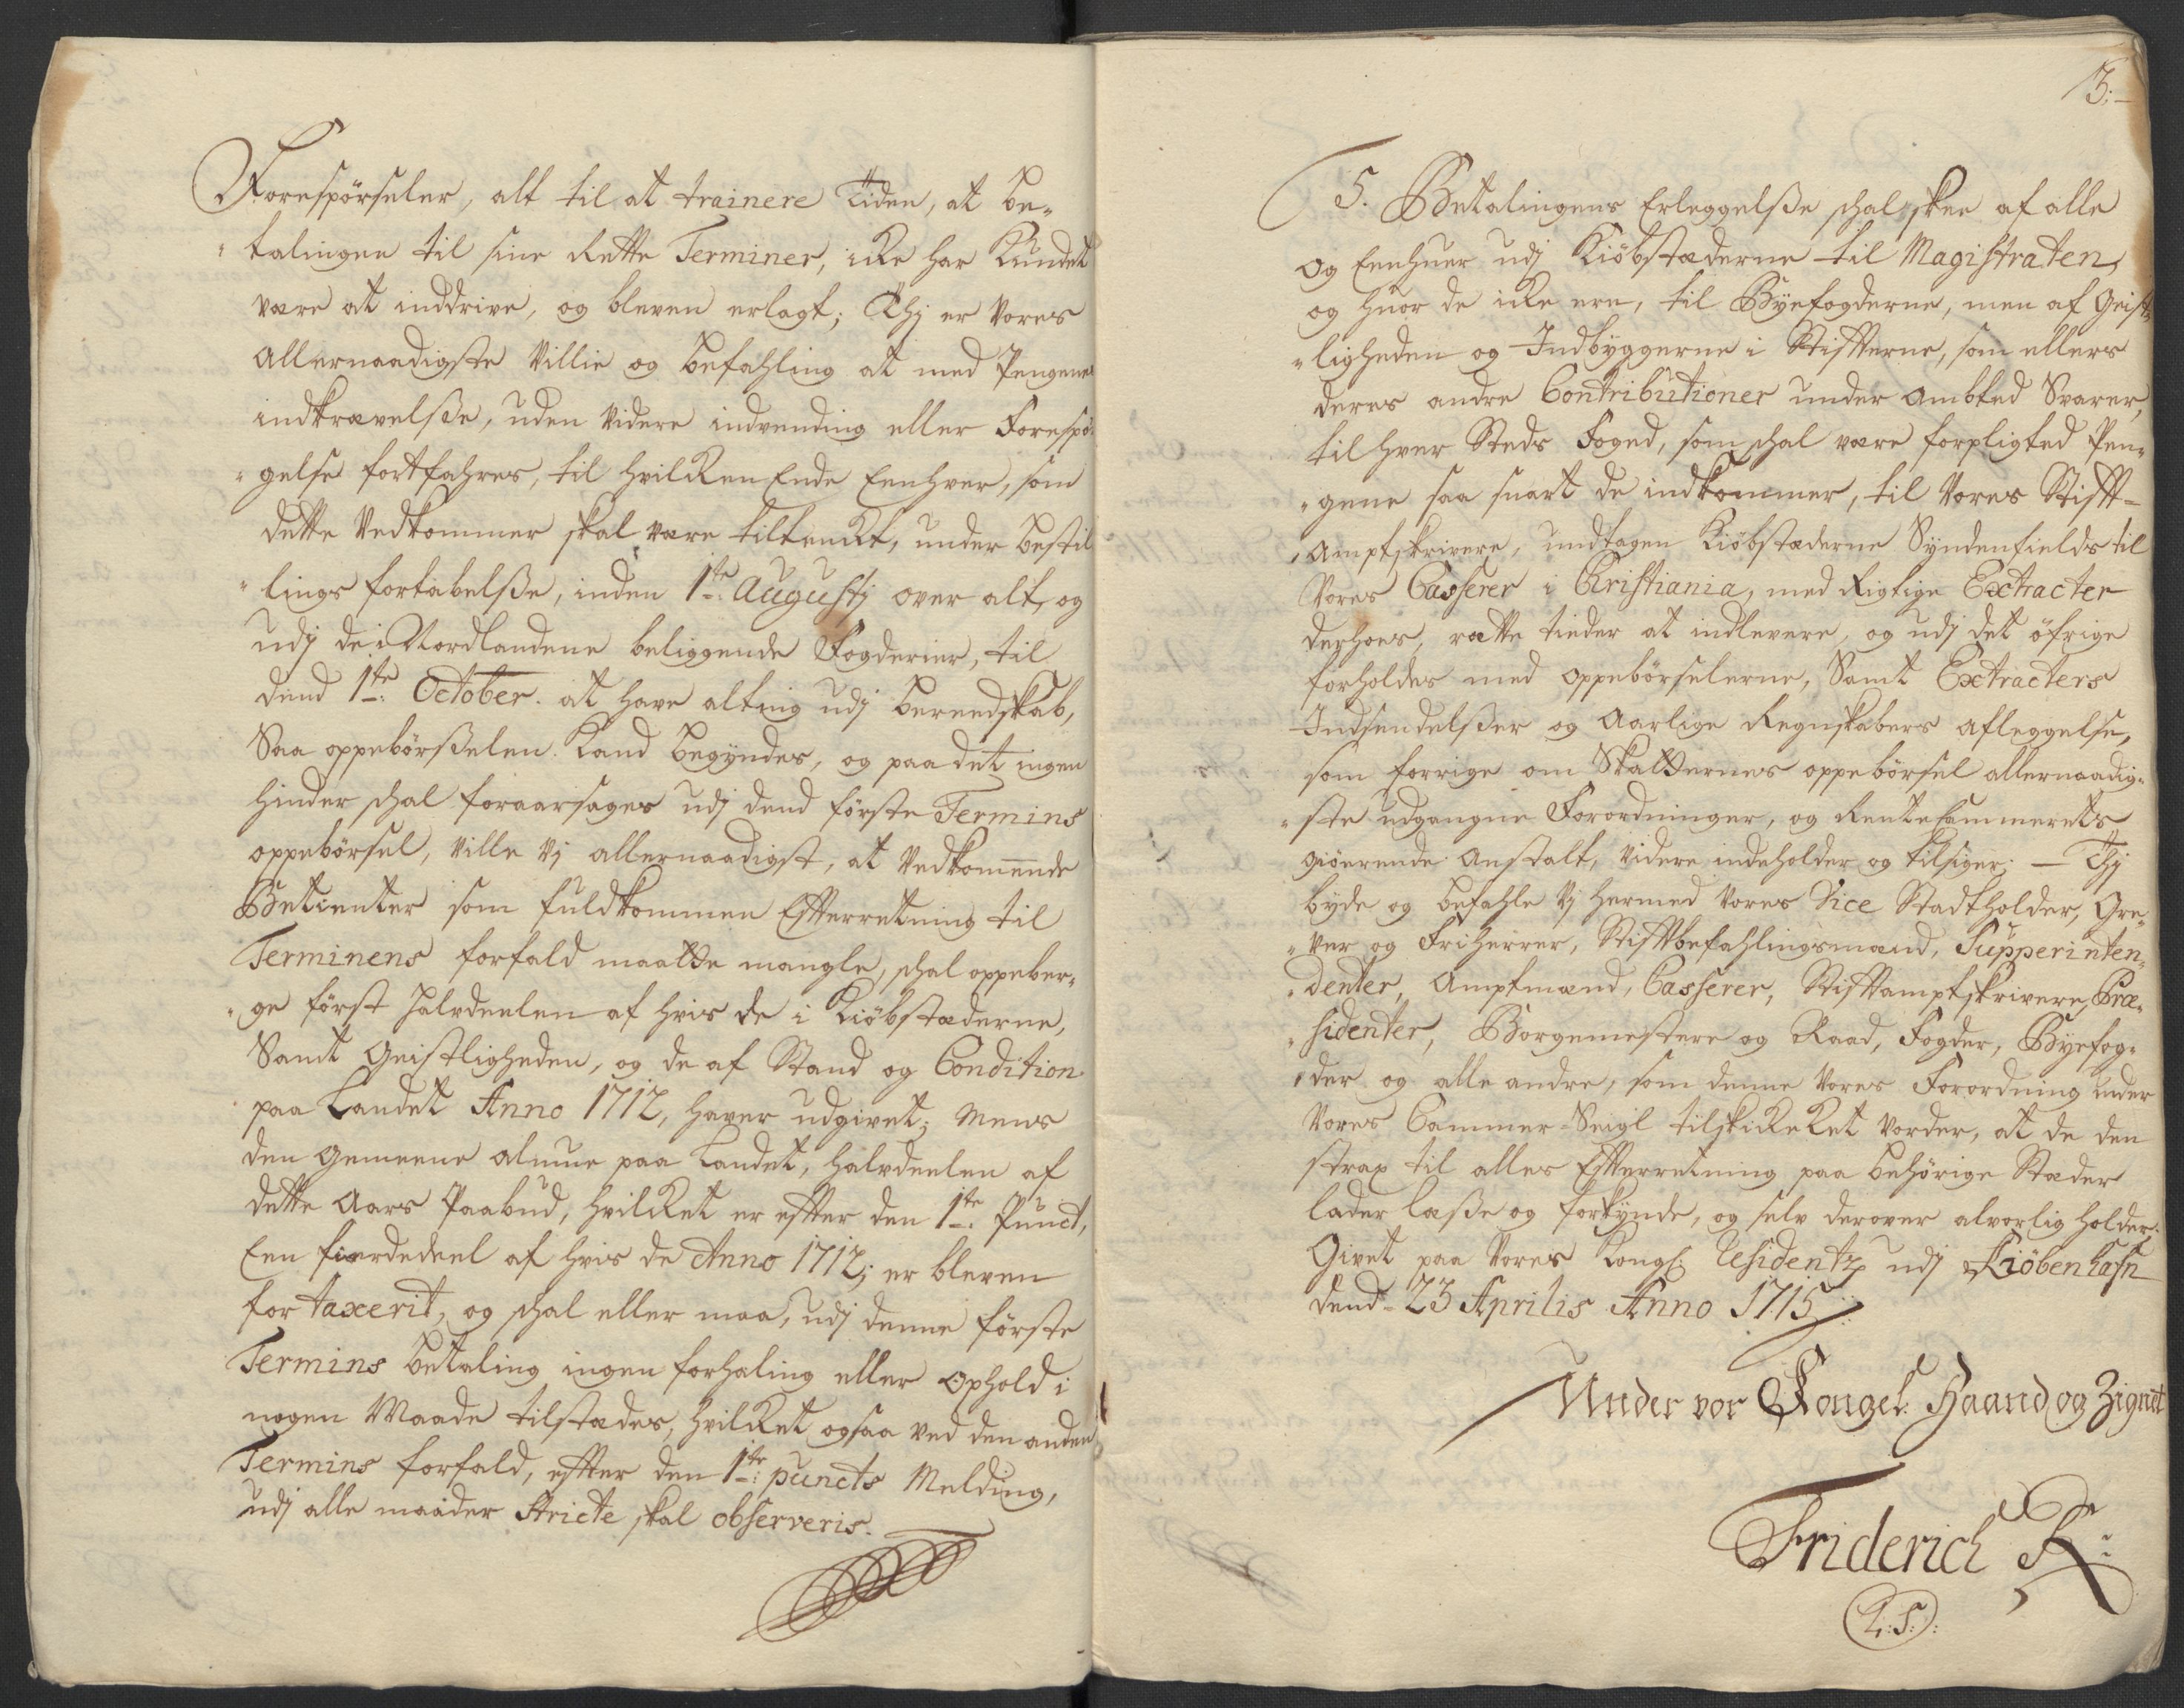 Forespörseler, alt til at trainere Tiden, at be-
talingen til sine Rette Terminer, icke har Kundet
være at inddrive, og bleven erlagt; Thj er Vores
allernaadigste Villie og befahling at med Pengenes
indkrævelsse, uden videre indvending eller Forespör-
gelse fortfahres, til hvilcken Ende Eenhver, som
dette Vedkommer skal være tiltenckt, under bestil
lings fortabelsse, inden 1te Augustj over alt, og
udj de i Nordlandene beliggende Fogderier, til
dend 1te October. at have alting udj bereedskab,
Saa oppebörsselen Kand begyndes, og paa det ingen
hinder schal foraarsages udj dend förste Termins
oppebörsel, ville Vj allernaadigst, at Vedkommende
Betienter som fuldkommen Efterretning til
Terminens forfald maatte mangle, schal oppeber-
ge först halvdeelen af hvis de i Kiöbstæderne,
Samt Geistligheden, og de af Stand og Condition
paa Landet Anno 1712, haver udgivet; Mens
den Gemeene almue paa Landet, halvdeelen af
dette Aars Paabud, hvilcket er efter den 1te Punct,
Een fierdedeel af hvis de Anno 1712; er bleven
for taxerit, og schal eller maa, udj denne förste
Termins betaling ingen forhaling eller Ophold i
nogen Maade tilstædes, hvilcket ogsaa ved den anden
Termins forfald, efter den 1te puncts Melding,
udj alle maader stricte skal observeris.
3:
5. Betalingens Erleggelsse schal skee af alle
og Eenhver udj Kiöbstæderne til Magistraten,
og hvor de icke ere, til Byefogderne, men af Geist-
ligheden og Indbyggerne i Stifterne, som ellers
deres andre Contributioner under ambted Svarer,
til hver Steds Foged, som schal være forpligted Pen-
gene saa snart de indkommer, til Vores Stift-
Amptskrivere, undtagen Kiöbstæderne Syndenfields til
Vores Casserer i Christiania, med Rigtige Extracter
derhoes, rætte tieder at indlevere, og udj det öfrige
forholdes med oppebörselerne, Samt Extracters
Indsendelsser og Aarlige Regnskabers afleggelse,
som forrige om Skatternes oppebörsel allernaadig-
ste udgangne Forordninger, og Rentekammerets
giörende Anstalt, videre indeholder og tilsiger: — Thj
byde og befahle Vj hermed Vores Vice Stadtholder, Gre-
ver og Friherrer, Stiftbefahlingsmænd, Supperinten-
denter, Amptmænd, Casserer, Stiftamptskrivere, Præ-
sidenter, Borgemestere og Raad, Fogder, Byefog-
der og alle andre, som denne Vores Forordning under
Vores Cammer-Seigl tilskicket vorder, at de den
strax til alles Efterretning paa behörige Stæder
lader læsse og forkynde, og selv derover alvorlig holder.
Givet paa Vores Kongl: Residentz udj Kiöbenhafn
dend 23 Aprilis Anno 1715
Under vor Kongel: Haand og Zignet
Friderich R:
L.S.